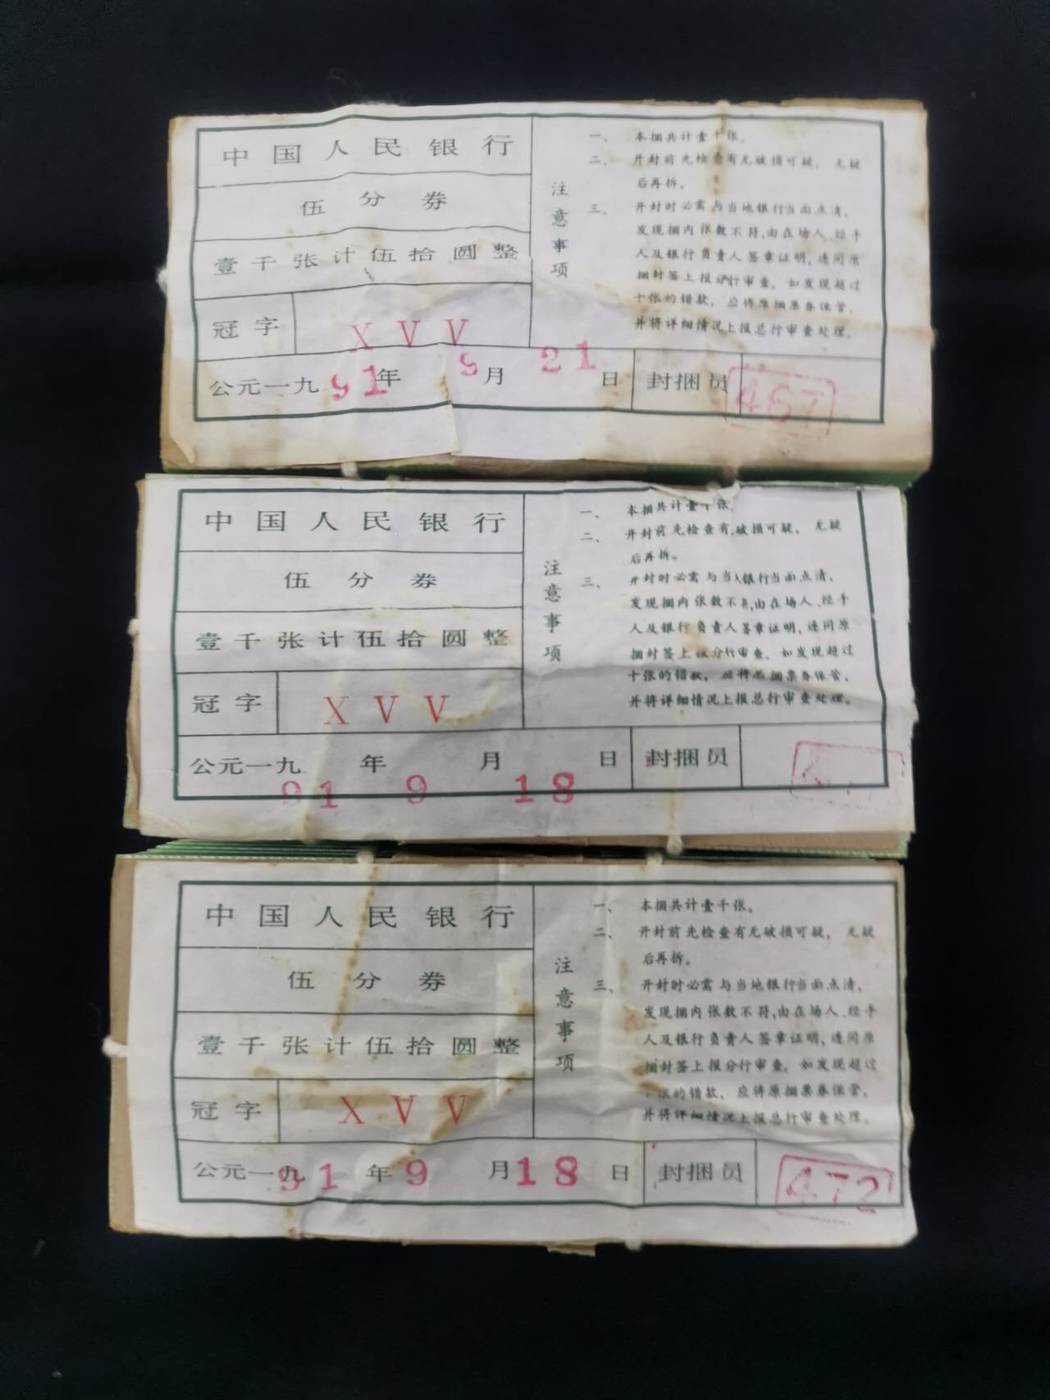 中国人民银行
伍分券
壹千张计伍拾圆整
冠字 XVV
公元一九91年 9月 21日 封捆员 467
注意事项
一、 本捆共计壹千张。
二、 开封前先检查有无破损可疑， 无疑
后再拆。
三、 开封时必需与当地银行当面点清，
发现捆内张数不符,由在场人、经手
人及银行负责人签章证明,连同原
捆封签上报分行审查。如发现超过
十张的错款， 应将原捆票券保管，
并将详细情况上报总行审查处理。
中国人民银行
伍分券
壹千张计伍拾圆整
冠字 XVV
公元一九91年 9月 18日 封捆员
注意事项
一、 本捆共计壹千张。
二、 开封前先检查有 破损可疑， 无疑
后再拆。
三、 开封时必需与当 银行当面点清，
发现捆内张数不 ,由在场人、经手
人及银行负责人签章证明,连同原
捆封签上报分行审查。如发现超过
十张的错款， 应将原捆票券保管，
并将详细情况上报总行审查处理。
中国人民银行
伍分券
壹千张计伍拾圆整
冠字 XVV
公元一九91年 9月 18日 封捆员 472
注意事项
一、 本捆共计壹千张。
二、 开封前先检查有无破损可疑， 无疑
后再拆。
三、 开封时必需与当地银行当面点清，
发现捆内张数不符,由在场人、经手
人及银行负责人签章证明,连同原
捆封签上报分行审查。如发现超过
十张的错款， 应将原捆票券保管，
并将详细情况上报总行审查处理。